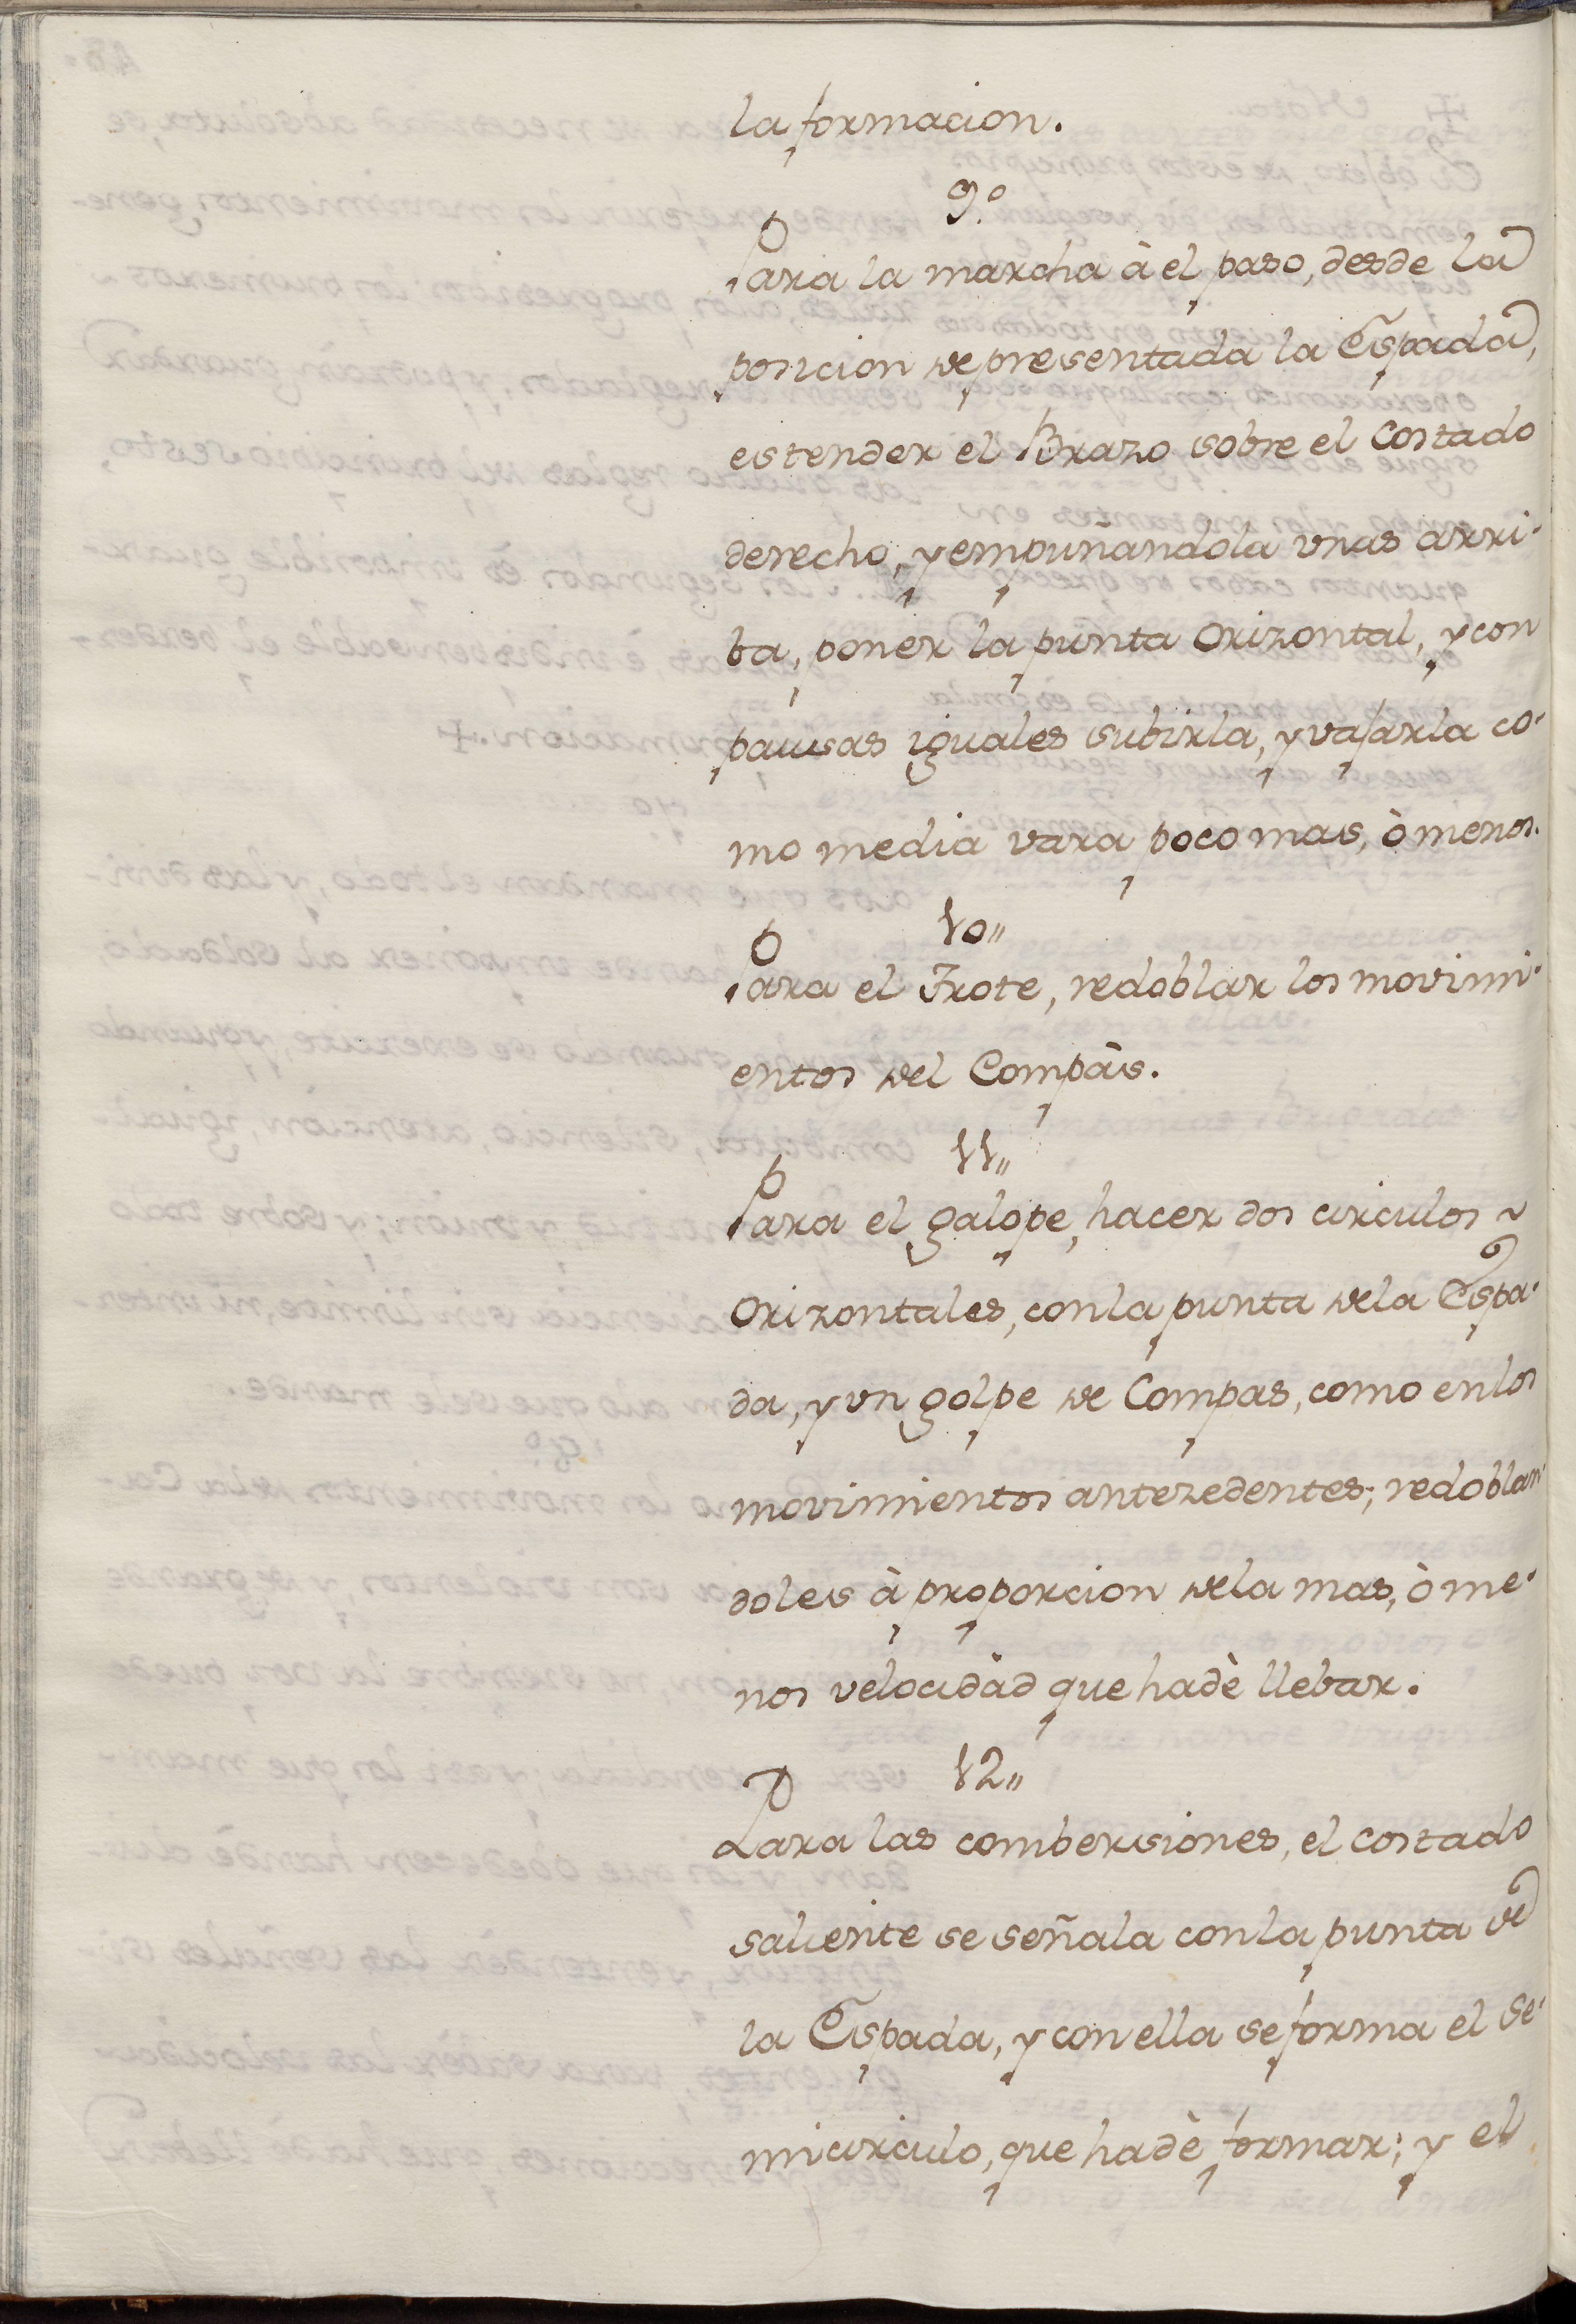 la formacion.
9.º
Para la marcha à el paso, desde la
posicion de presentada la Espada,
estender el Brazo sobre el Costado
derecho, y empuñandola vnas arri-
ba, poner la punta Orizontal, y con
pausas iguales subirla, y vajarla co-
mo media vara poco mas, ò menos.
10,,
Para el Trote, redoblar los movimi-
entos del Compàs.
11,,
Para el galope, hacer dos circulos ~
Orizontales, con la punta de la Espa-
da, y vn golpe de Compas, como en los
movimientos antezedentes; redoblan-
doles à proporcion de la mas, ò me-
nos velocidàd que hadè llebar.
12,,
Para las combersiones, el costado
saliente se señala con la punta de
la Espada, y con ella se forma el se-
micirculo, que hadè formar; y el